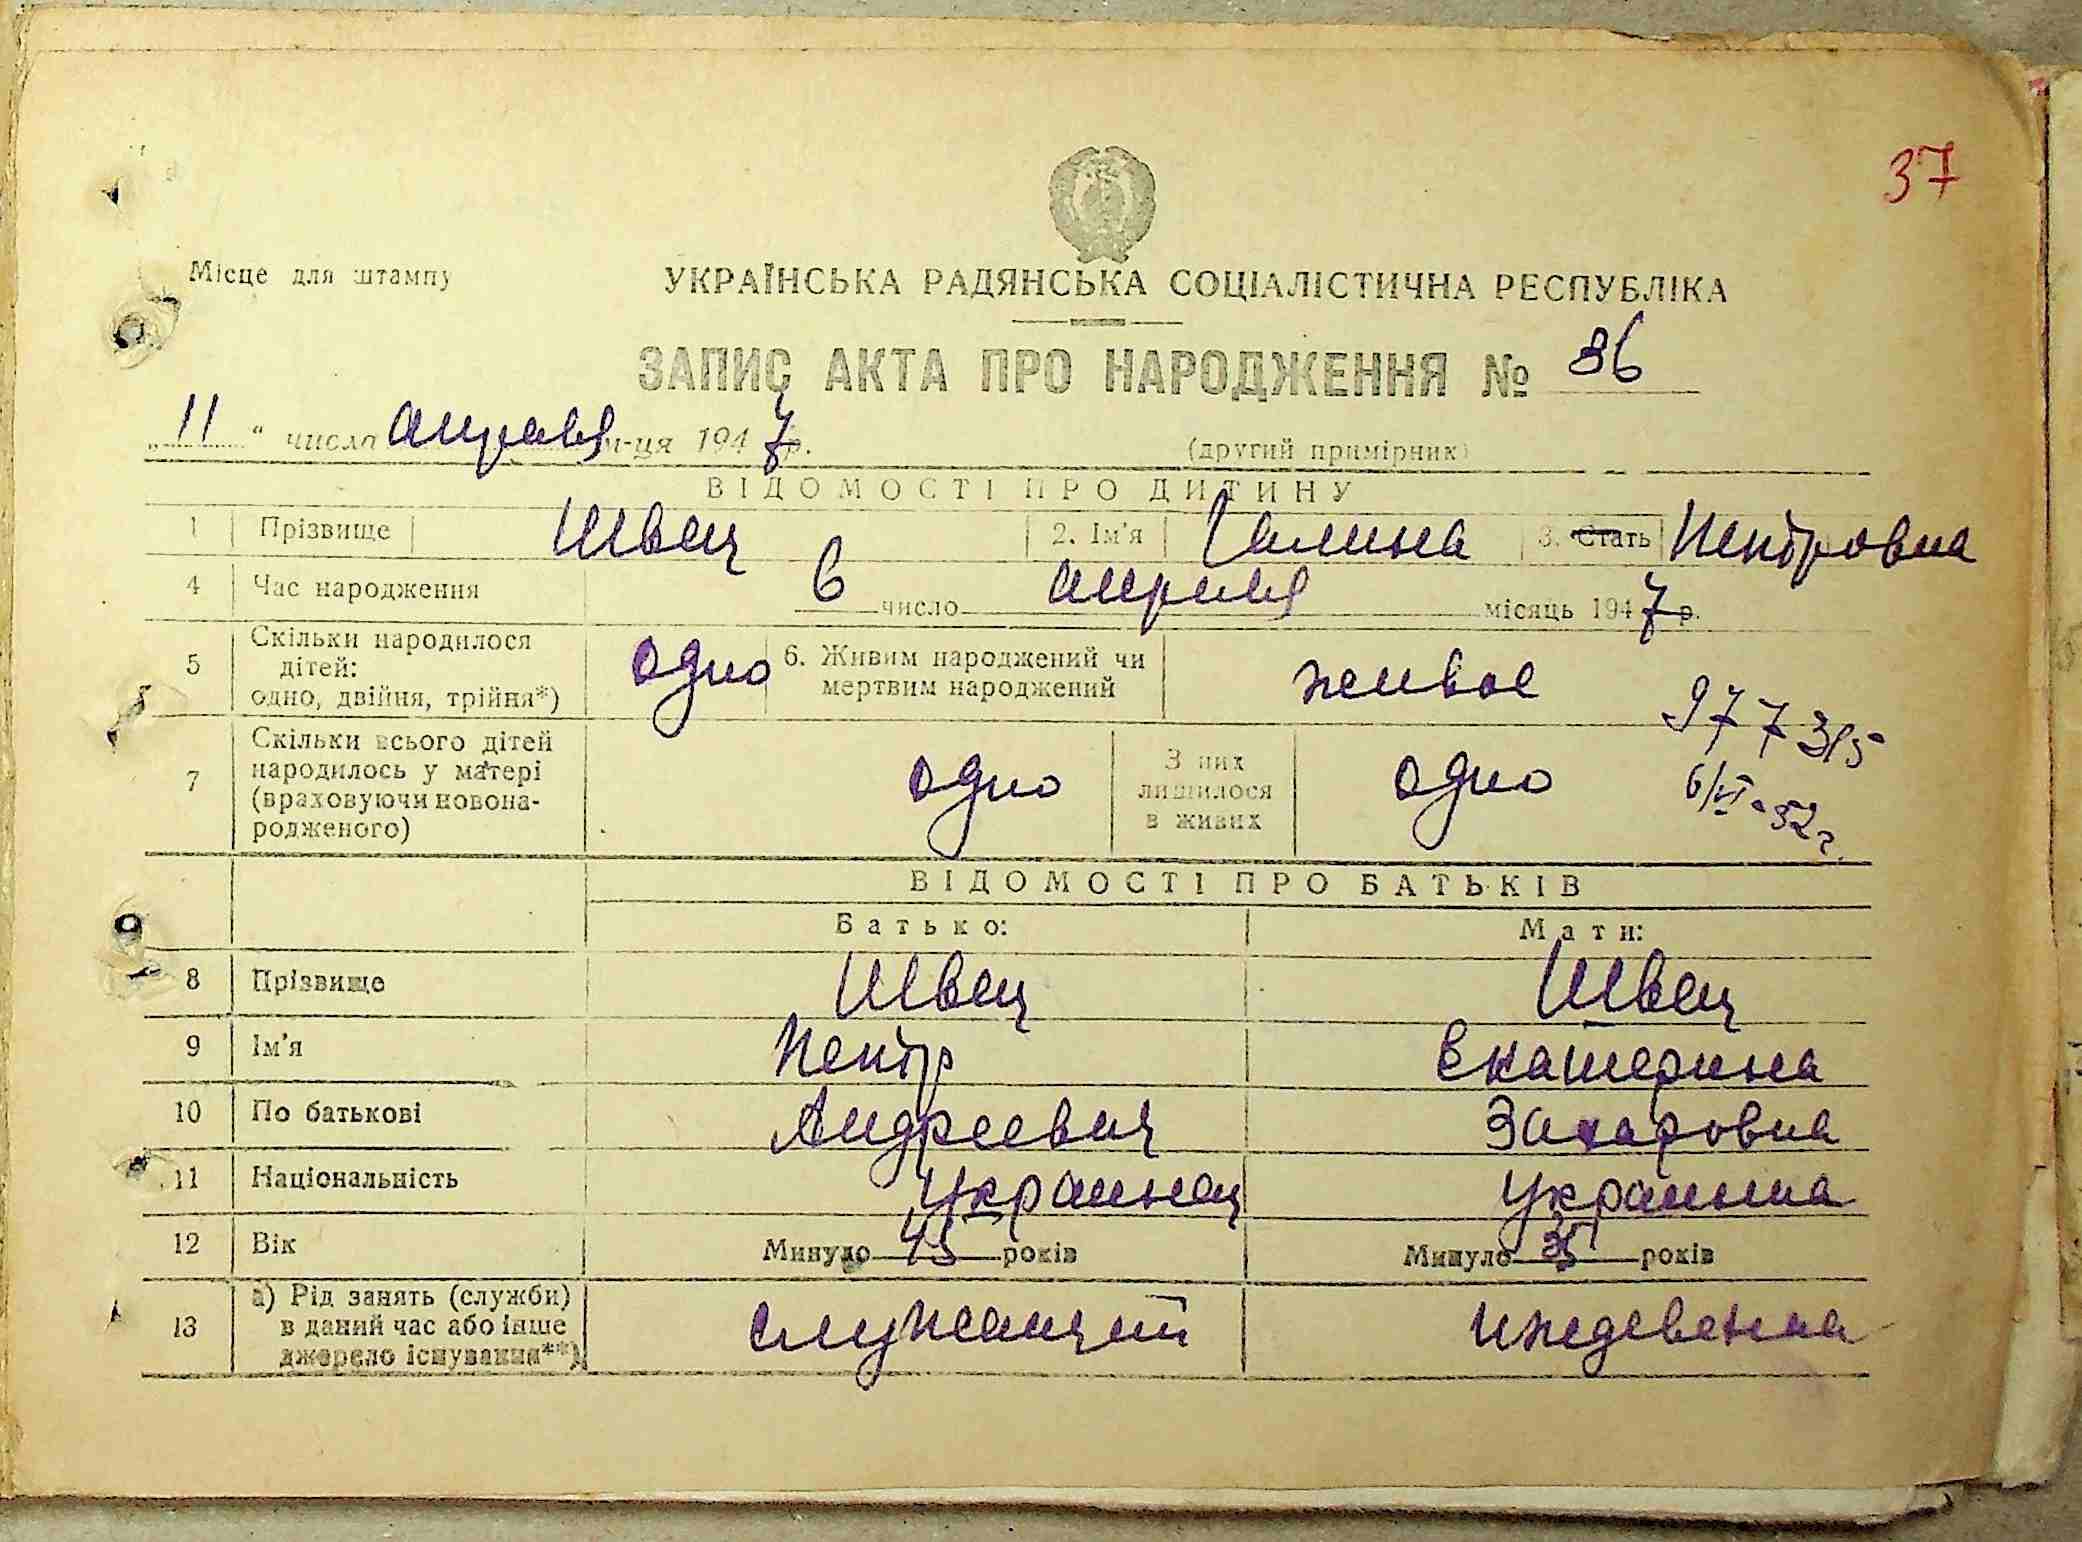 37
Місце для штампу
УКРАЇНСЬКА РАДЯНСЬКА СОЦІАЛІСТИЧНА РЕСПУБЛІКА
ЗАПИС АКТА ПРО НАРОДЖЕННЯ № 36
„11“ числа апреля м-ця 1947 р. (другий примірник)
ВІДОМОСТІ ПРО ДИТИНУ
1 Прізвище Швец 2. Ім'я Галина 3. Стать Петровна
4 Час народження 6 число апреля місяць 1947 р.
5 Скільки народилося дітей: одно, двійня, трійня*) одно 6. Живим народжений чи мертвим народжений живое
977 315
6/VI-52 г.
7 Скільки всього дітей народилось у матері (враховуючи новонародженого) одно З них лишилося в живих одно
ВІДОМОСТІ ПРО БАТЬКІВ
Батько: Мати:
8 Прізвище Швец Швец
9 Ім'я Петр Екатерина
10 По батькові Андреевич Захаровна
11 Національність Украинец Украинка
12 Вік Минуло 45 років Минуло 35 років
13 а) Рід занять (служби) в даний час або інше джерело існування**) служащий иждевенка